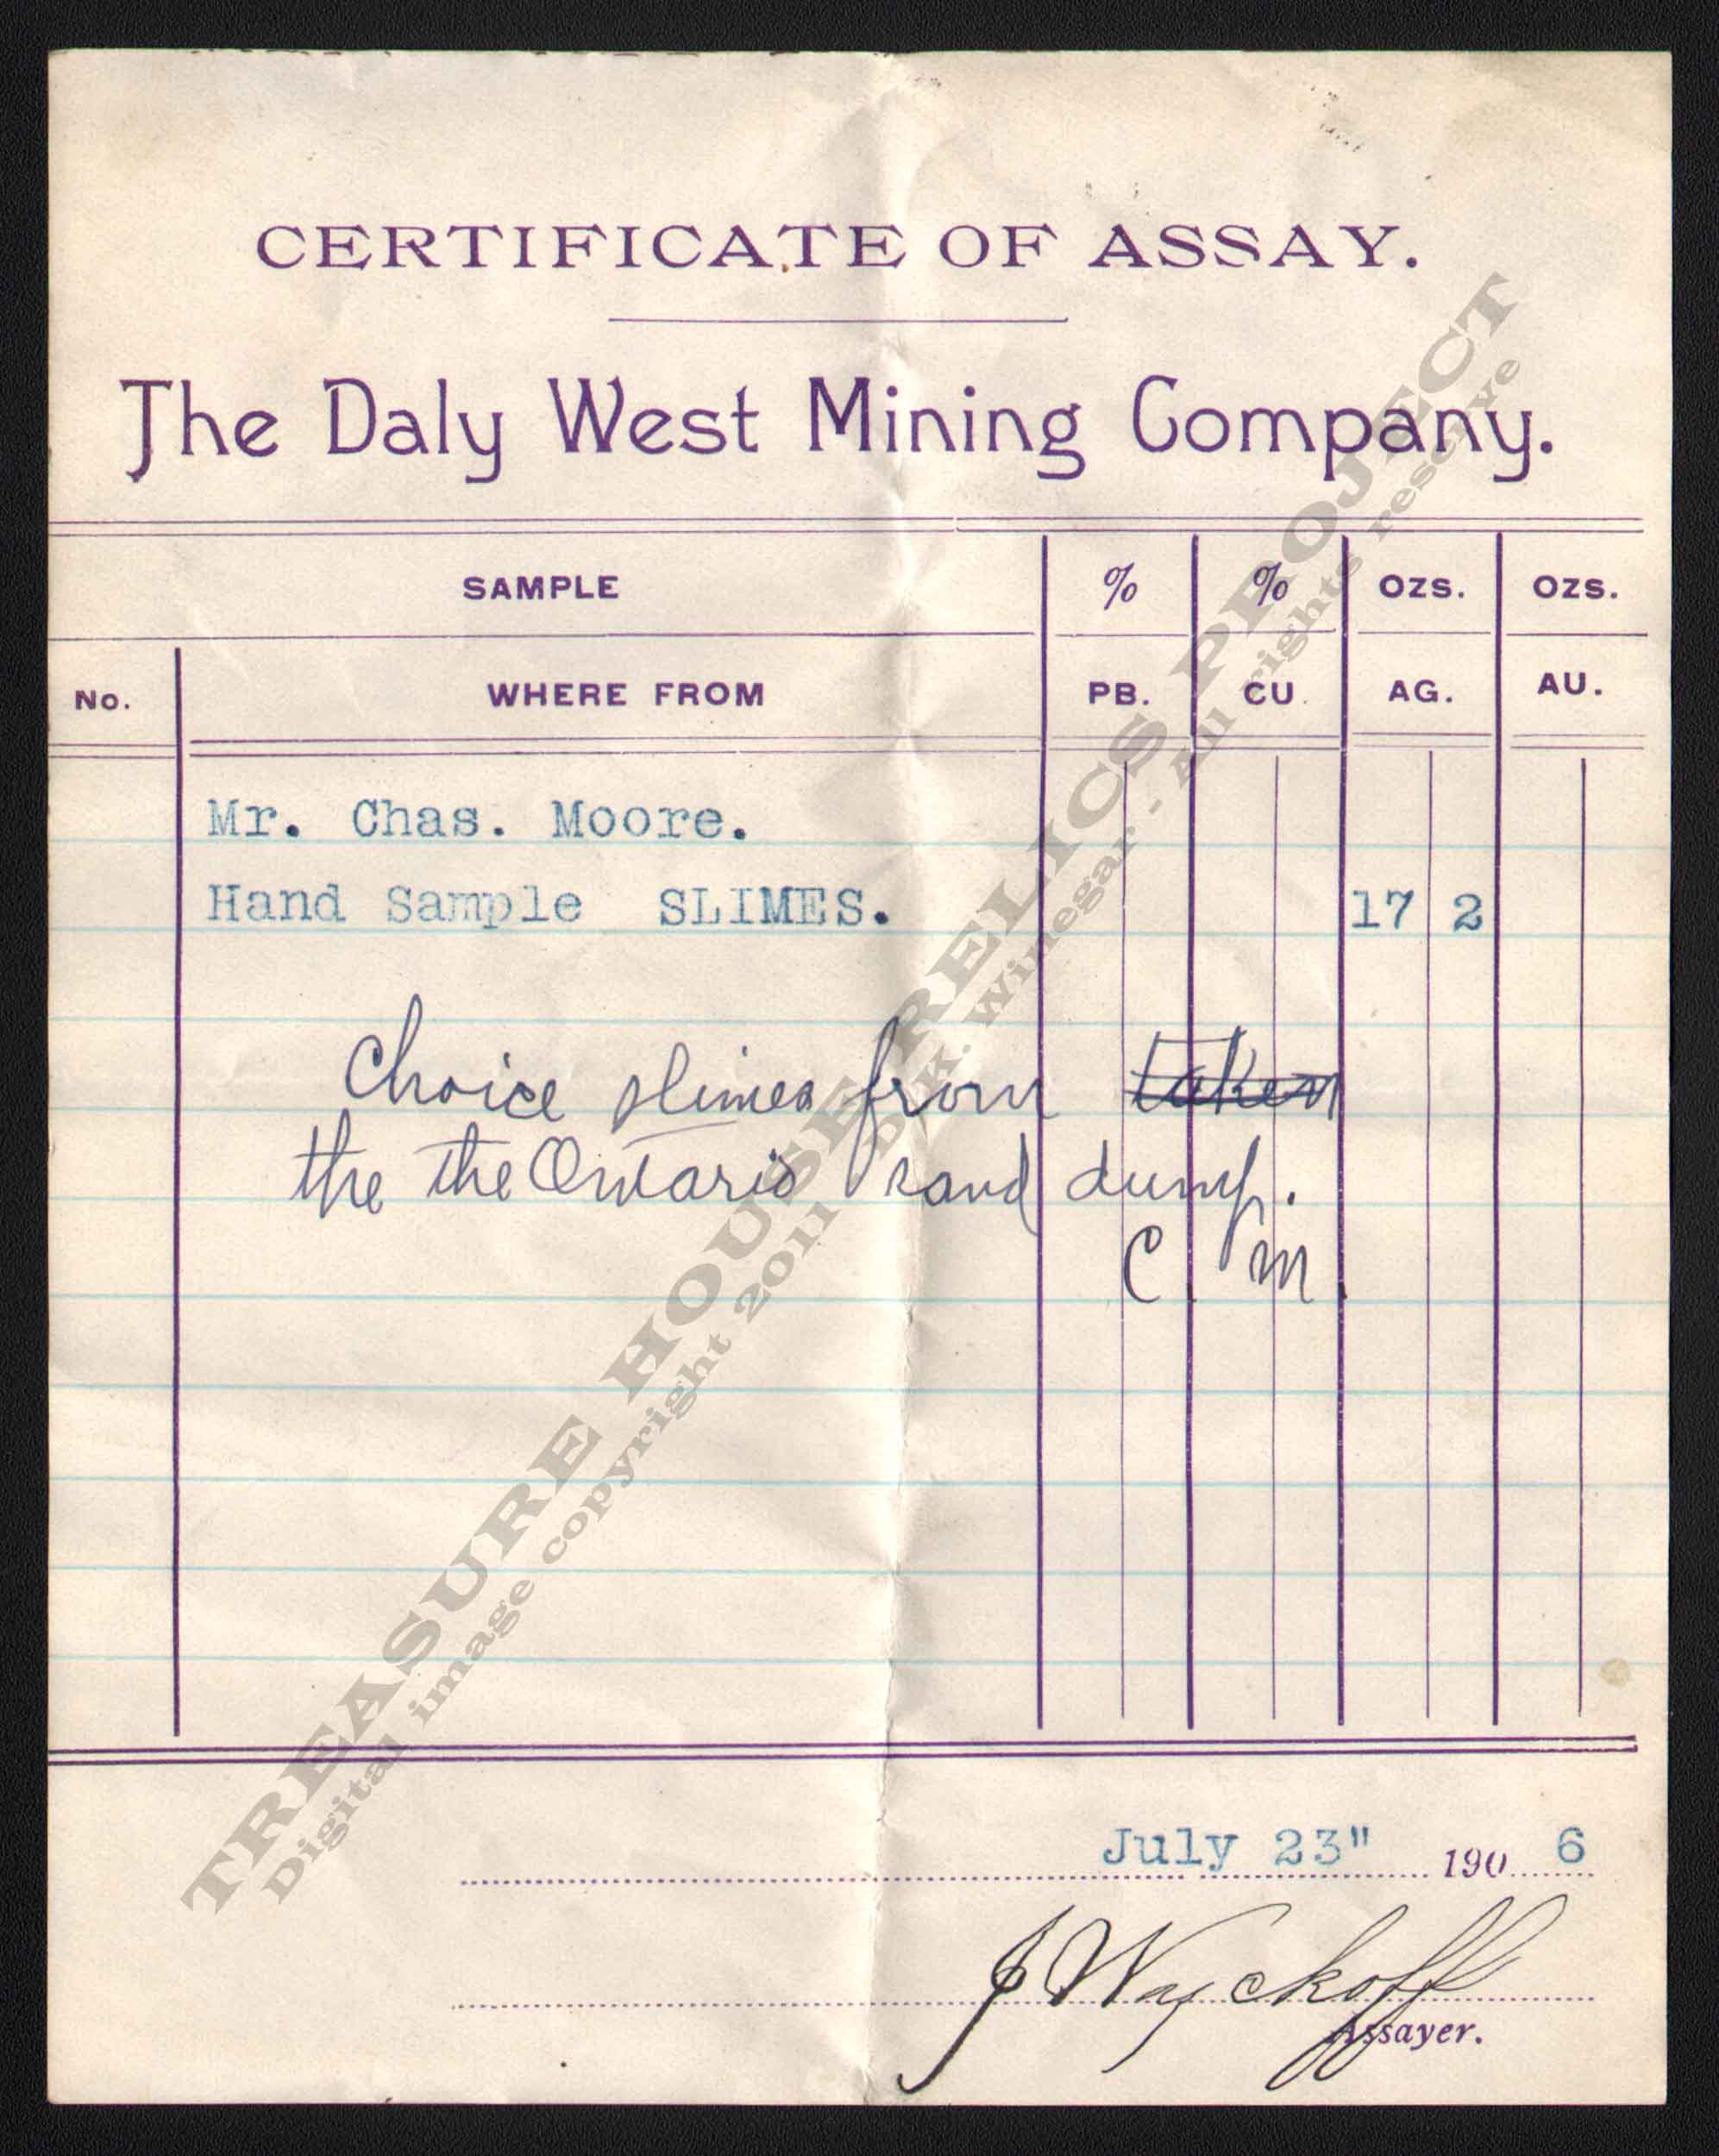 CERTIFICATE OF ASSAY.
The Daly West Mining Company.
SAMPLE % % OZS. OZS.
No. WHERE FROM PB. CU. AG. AU.
Mr. Chas. Moore.
Hand Sample SLIMES. 17 2
Choice slimes from taken
the the Ontario sand dump.
C. M.
July 23" 190 6
J Wayckoff
Assayer.
TREASURE HOUSE RELICS PROJECT
Digital image copyright 2011 D.K. Winegar - All rights reserve